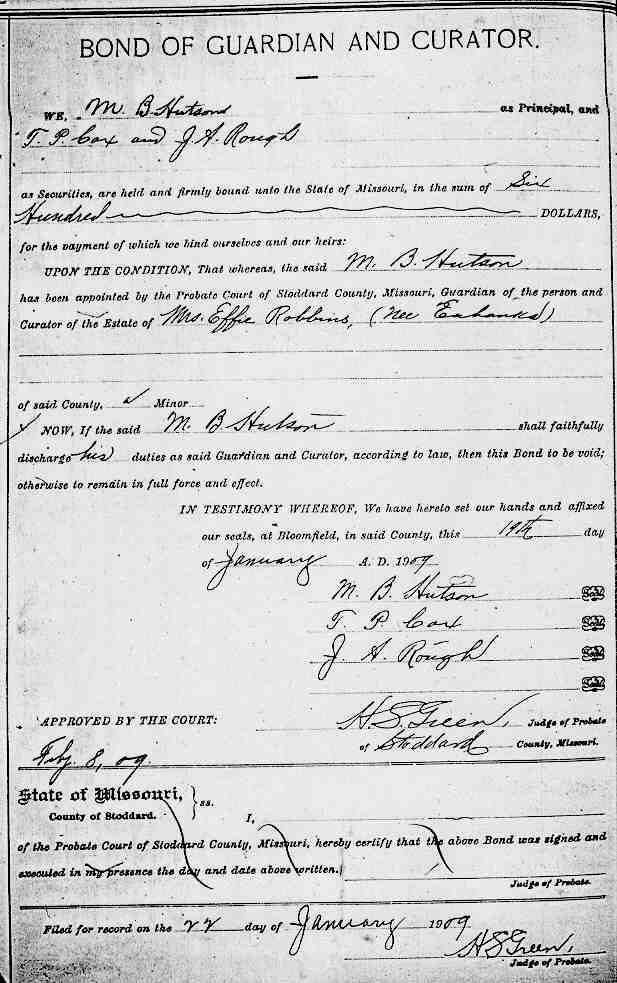 BOND OF GUARDIAN AND CURATOR.
WE, M B. Hutson as Principal, and
T. P. Cox and J. A. Rough
as Securities, are held and firmly bound unto the State of Missouri, in the sum of Six
Hundred DOLLARS,
for the payment of which we bind ourselves and our heirs:
UPON THE CONDITION, That whereas, the said M. B. Hutson
has been appointed by the Probate Court of Stoddard County, Missouri, Guardian of the person and
Curator of the Estate of Mrs. Effie Robbins, (nee Eubanks)
of said County, a Minor
NOW, If the said M. B. Hutson shall faithfully
discharge his duties as said Guardian and Curator, according to law, then this Bond to be void;
otherwise to remain in full force and effect.
IN TESTIMONY WHEREOF, We have hereto set our hands and affixed
our seals, at Bloomfield, in said County, this 19th day
of January A. D. 1909
M. B. Hutson Seal
T. P. Cox Seal
J. A. Rough Seal
Seal
APPROVED BY THE COURT: H. S. Green, Judge of Probate
of Stoddard County, Missouri.
Feby. 8, 09.
State of Missouri, } ss.
County of Stoddard. I,
of the Probate Court of Stoddard County, Missouri, hereby certify that the above Bond was signed and
executed in my presence the day and date above written.
Judge of Probate.
Filed for record on the 22 day of January 1909
H S Green,
Judge of Probate.